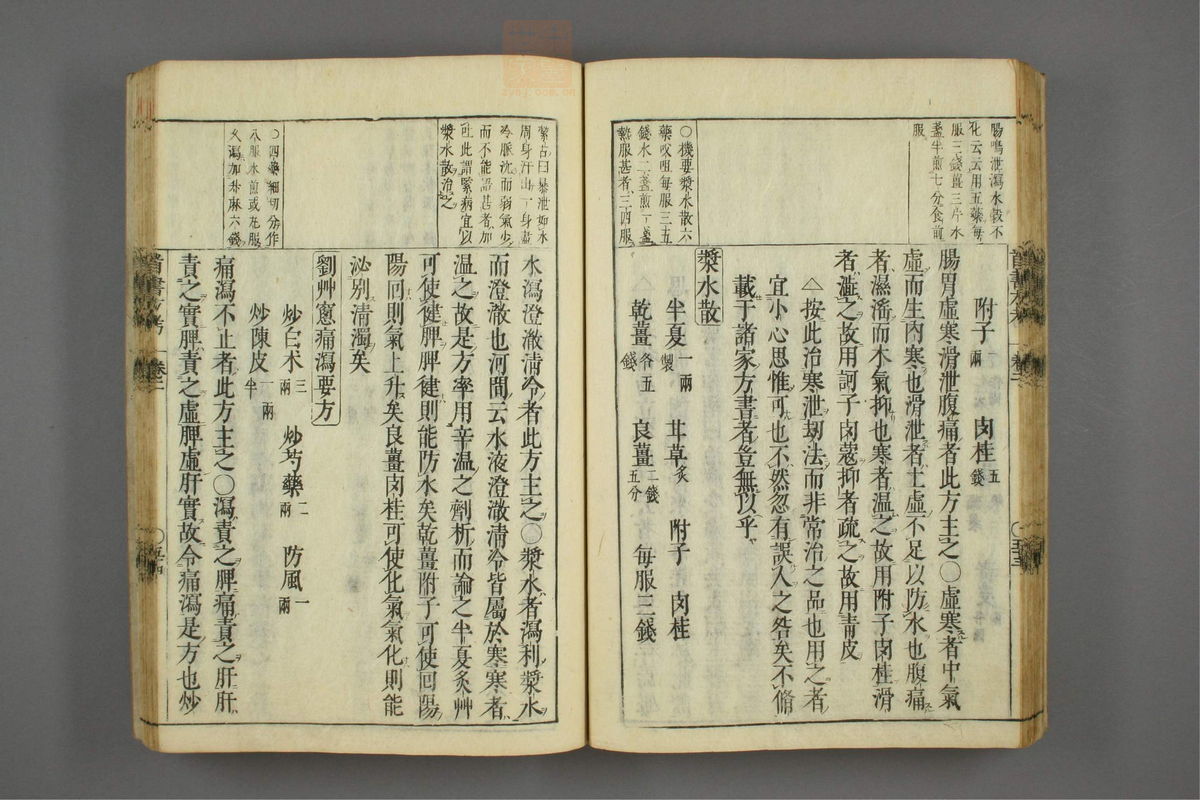 腸鳴泄瀉水穀不
化云云用五藥每
服三錢薑三片水
盞半煎七分食前
服
○機要漿水散六
藥㕮咀每服三五
錢水二盞煎一盞
熱服甚者三四服
附子兩 肉桂五錢
腸胃虛寒滑泄腹痛者此方主之○虛寒者中氣
虛而生內寒也滑泄者土虛不足以防水也腹痛
者濕滛而木氣抑也寒者温之故用附子肉桂滑
者澁之故用訶子肉蔻抑者疏之故用青皮
△按此治寒泄劫法而非常治之品也用之者
宜小心思惟可也不然忽有誤人之咎矣不脩
載于諸家方書者豈無以乎
漿水散
半夏一兩製 甘草炙 附子 肉桂
乾薑各五錢 良薑二錢五分 每服三錢
潔古曰暴泄如水
周身汗出一身盡
冷脈沈而弱氣少
而不能語甚者加
吐此謂緊病宜以
漿水散治之
○四藥細切分作
八服水煎或丸服
久瀉加升麻六錢
水瀉澄澈清冷者此方主之○漿水者瀉利漿水
而澄澈也河間云水液澄澈清冷皆屬於寒寒者
温之故是方率用辛温之劑析而論之半夏炙艸
可使健脾脾健則能防水矣乾薑附子可使囘陽
陽囘則氣上升矣良薑肉桂可使化氣氣化則能
泌別清濁矣
劉艸窻痛瀉要方
炒白朮三兩 炒芍藥二兩 防風一兩
炒陳皮一兩半
痛瀉不止者此方主之○瀉責之脾痛責之肝肝
責之實脾責之虛脾虛肝實故令痛瀉是方也炒